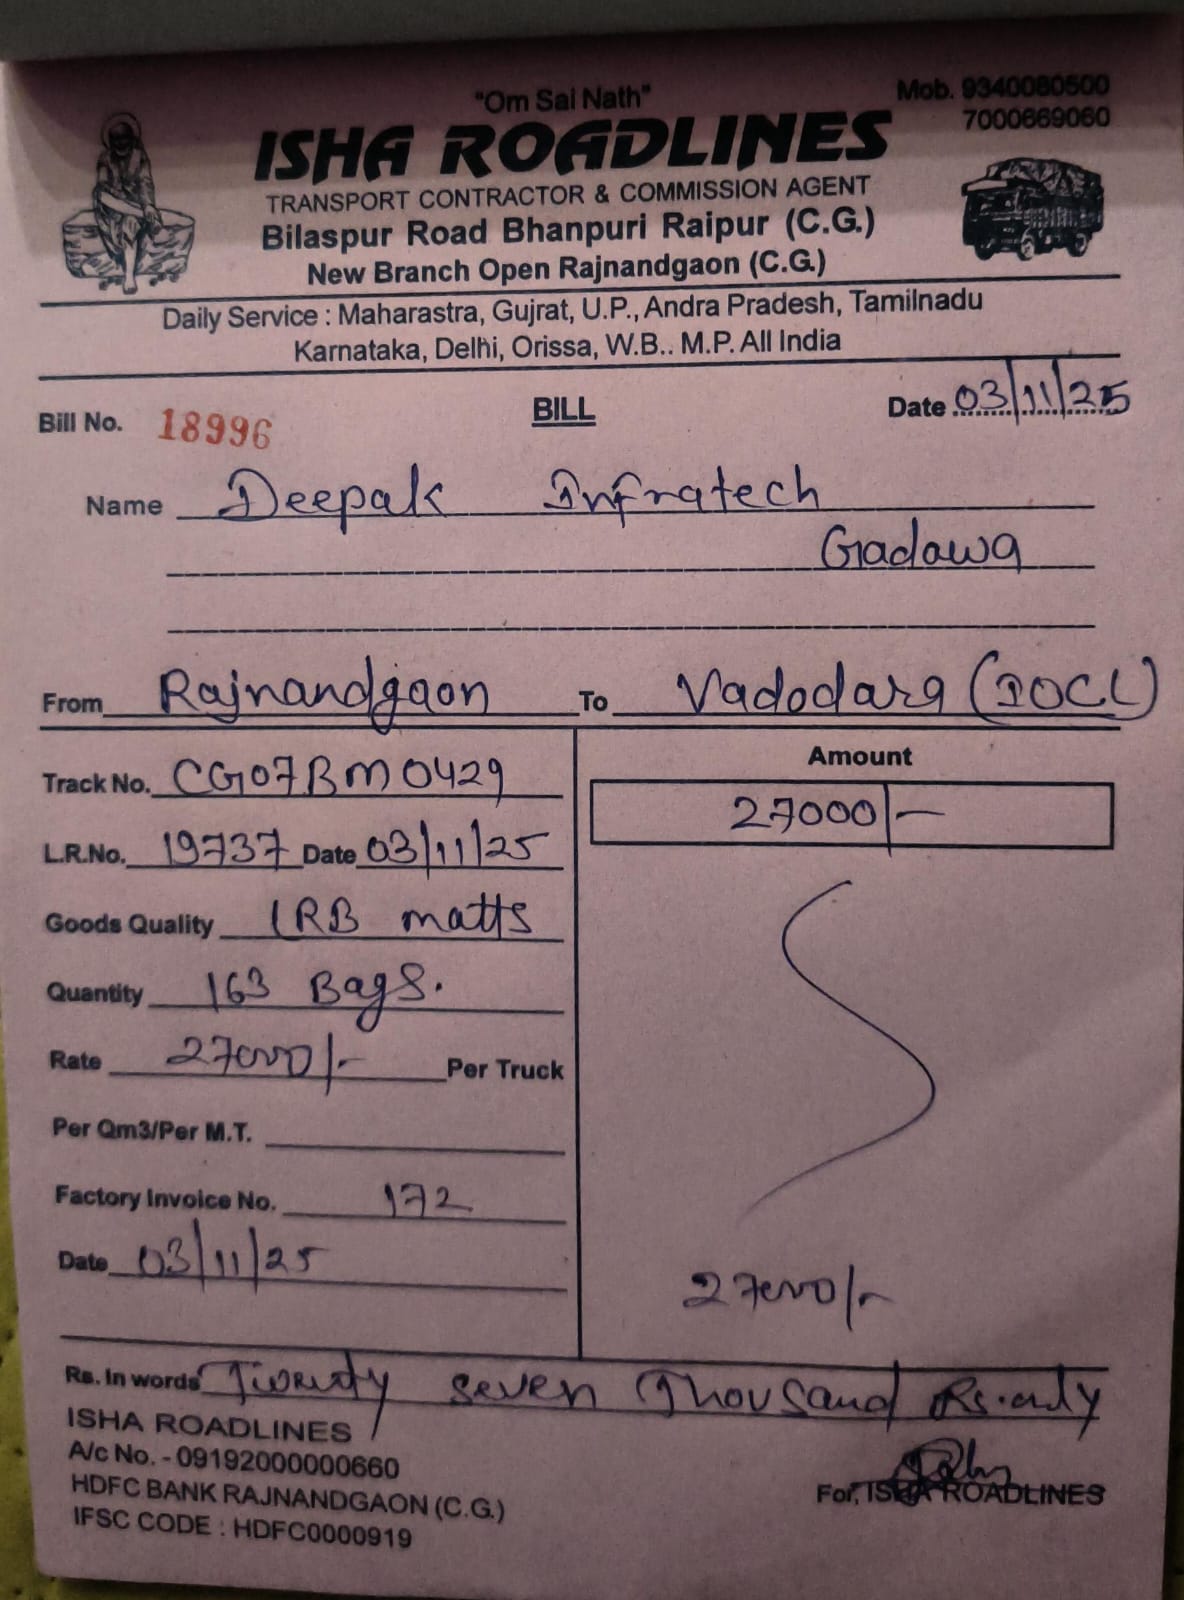 "Om Sai Nath"
Mob. 9340080500
7000669060
ISHA ROADLINES
TRANSPORT CONTRACTOR & COMMISSION AGENT
Bilaspur Road Bhanpuri Raipur (C.G.)
New Branch Open Rajnandgaon (C.G.)
Daily Service : Maharastra, Gujrat, U.P., Andra Pradesh, Tamilnadu
Karnataka, Delhi, Orissa, W.B.. M.P. All India
Bill No. 18996 BILL Date 03/11/25
Name Deepak Infratech
Gadawa
From Rajnandgaon To Vadodara (IOCL)
Track No. CG07BM0429
Amount
27000/-
L.R.No. 19737 Date 03/11/25
Goods Quality LRB matts
Quantity 163 Bags.
Rate 27000/- Per Truck
Per Qm3/Per M.T.
Factory Invoice No. 172
Date 03/11/25
27000/-
Rs. In words Twenty seven Thousand Rs. only
ISHA ROADLINES
A/c No. - 09192000000660
HDFC BANK RAJNANDGAON (C.G.)
IFSC CODE : HDFC0000919
For, ISHA ROADLINES